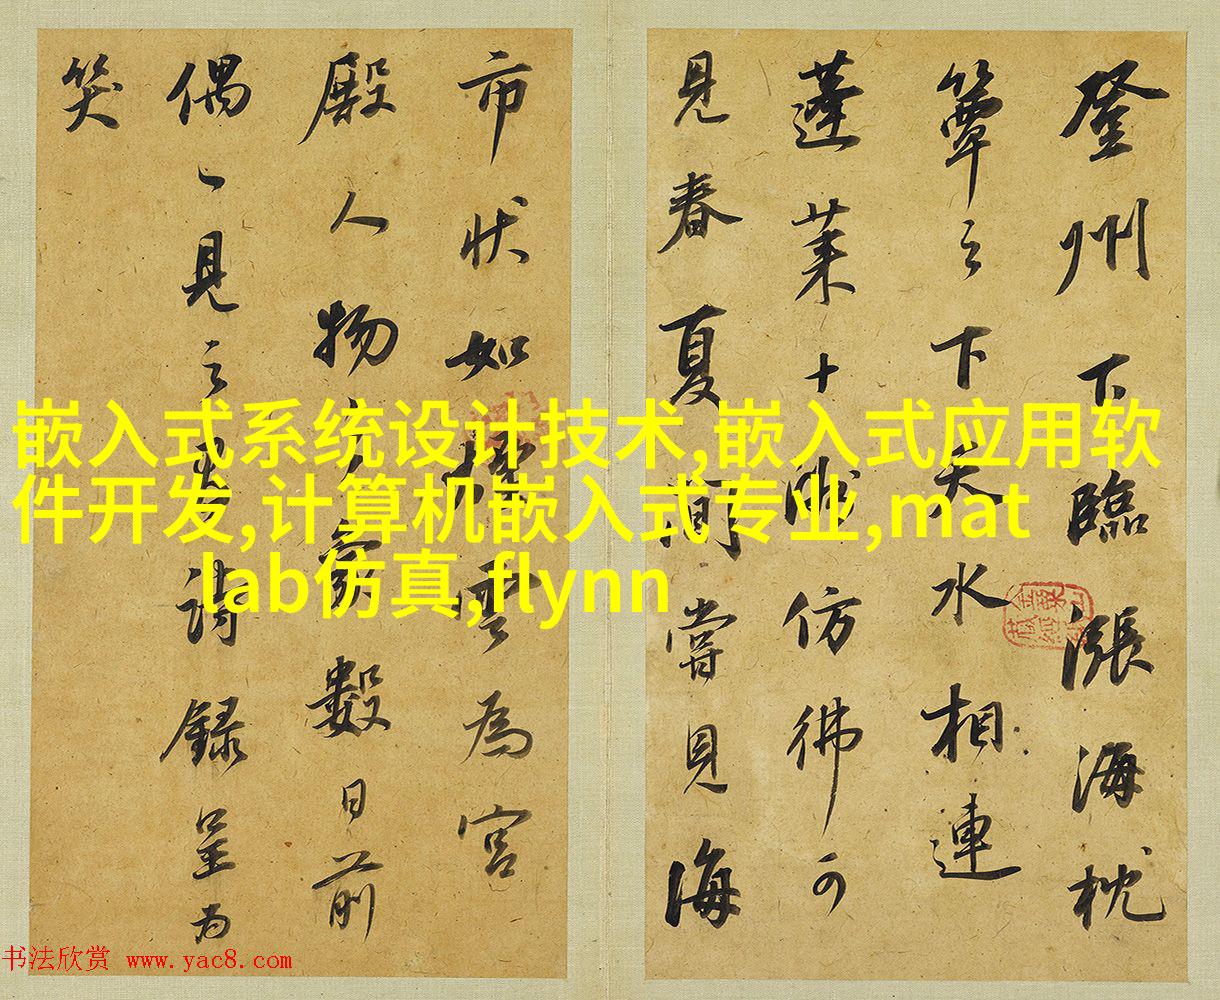 登州下臨漲海枕
簟之下天水相連
蓬莱十洲仿彿可
見春夏間嘗見海
市狀如雲為宮
殿人物之象數日前
偶一見之詩録呈為
笑
嵌入式系统设计技术,嵌入式应用软
件开发,计算机嵌入式专业,mat
lab仿真,flynn
书法欣赏 www.yac8.com